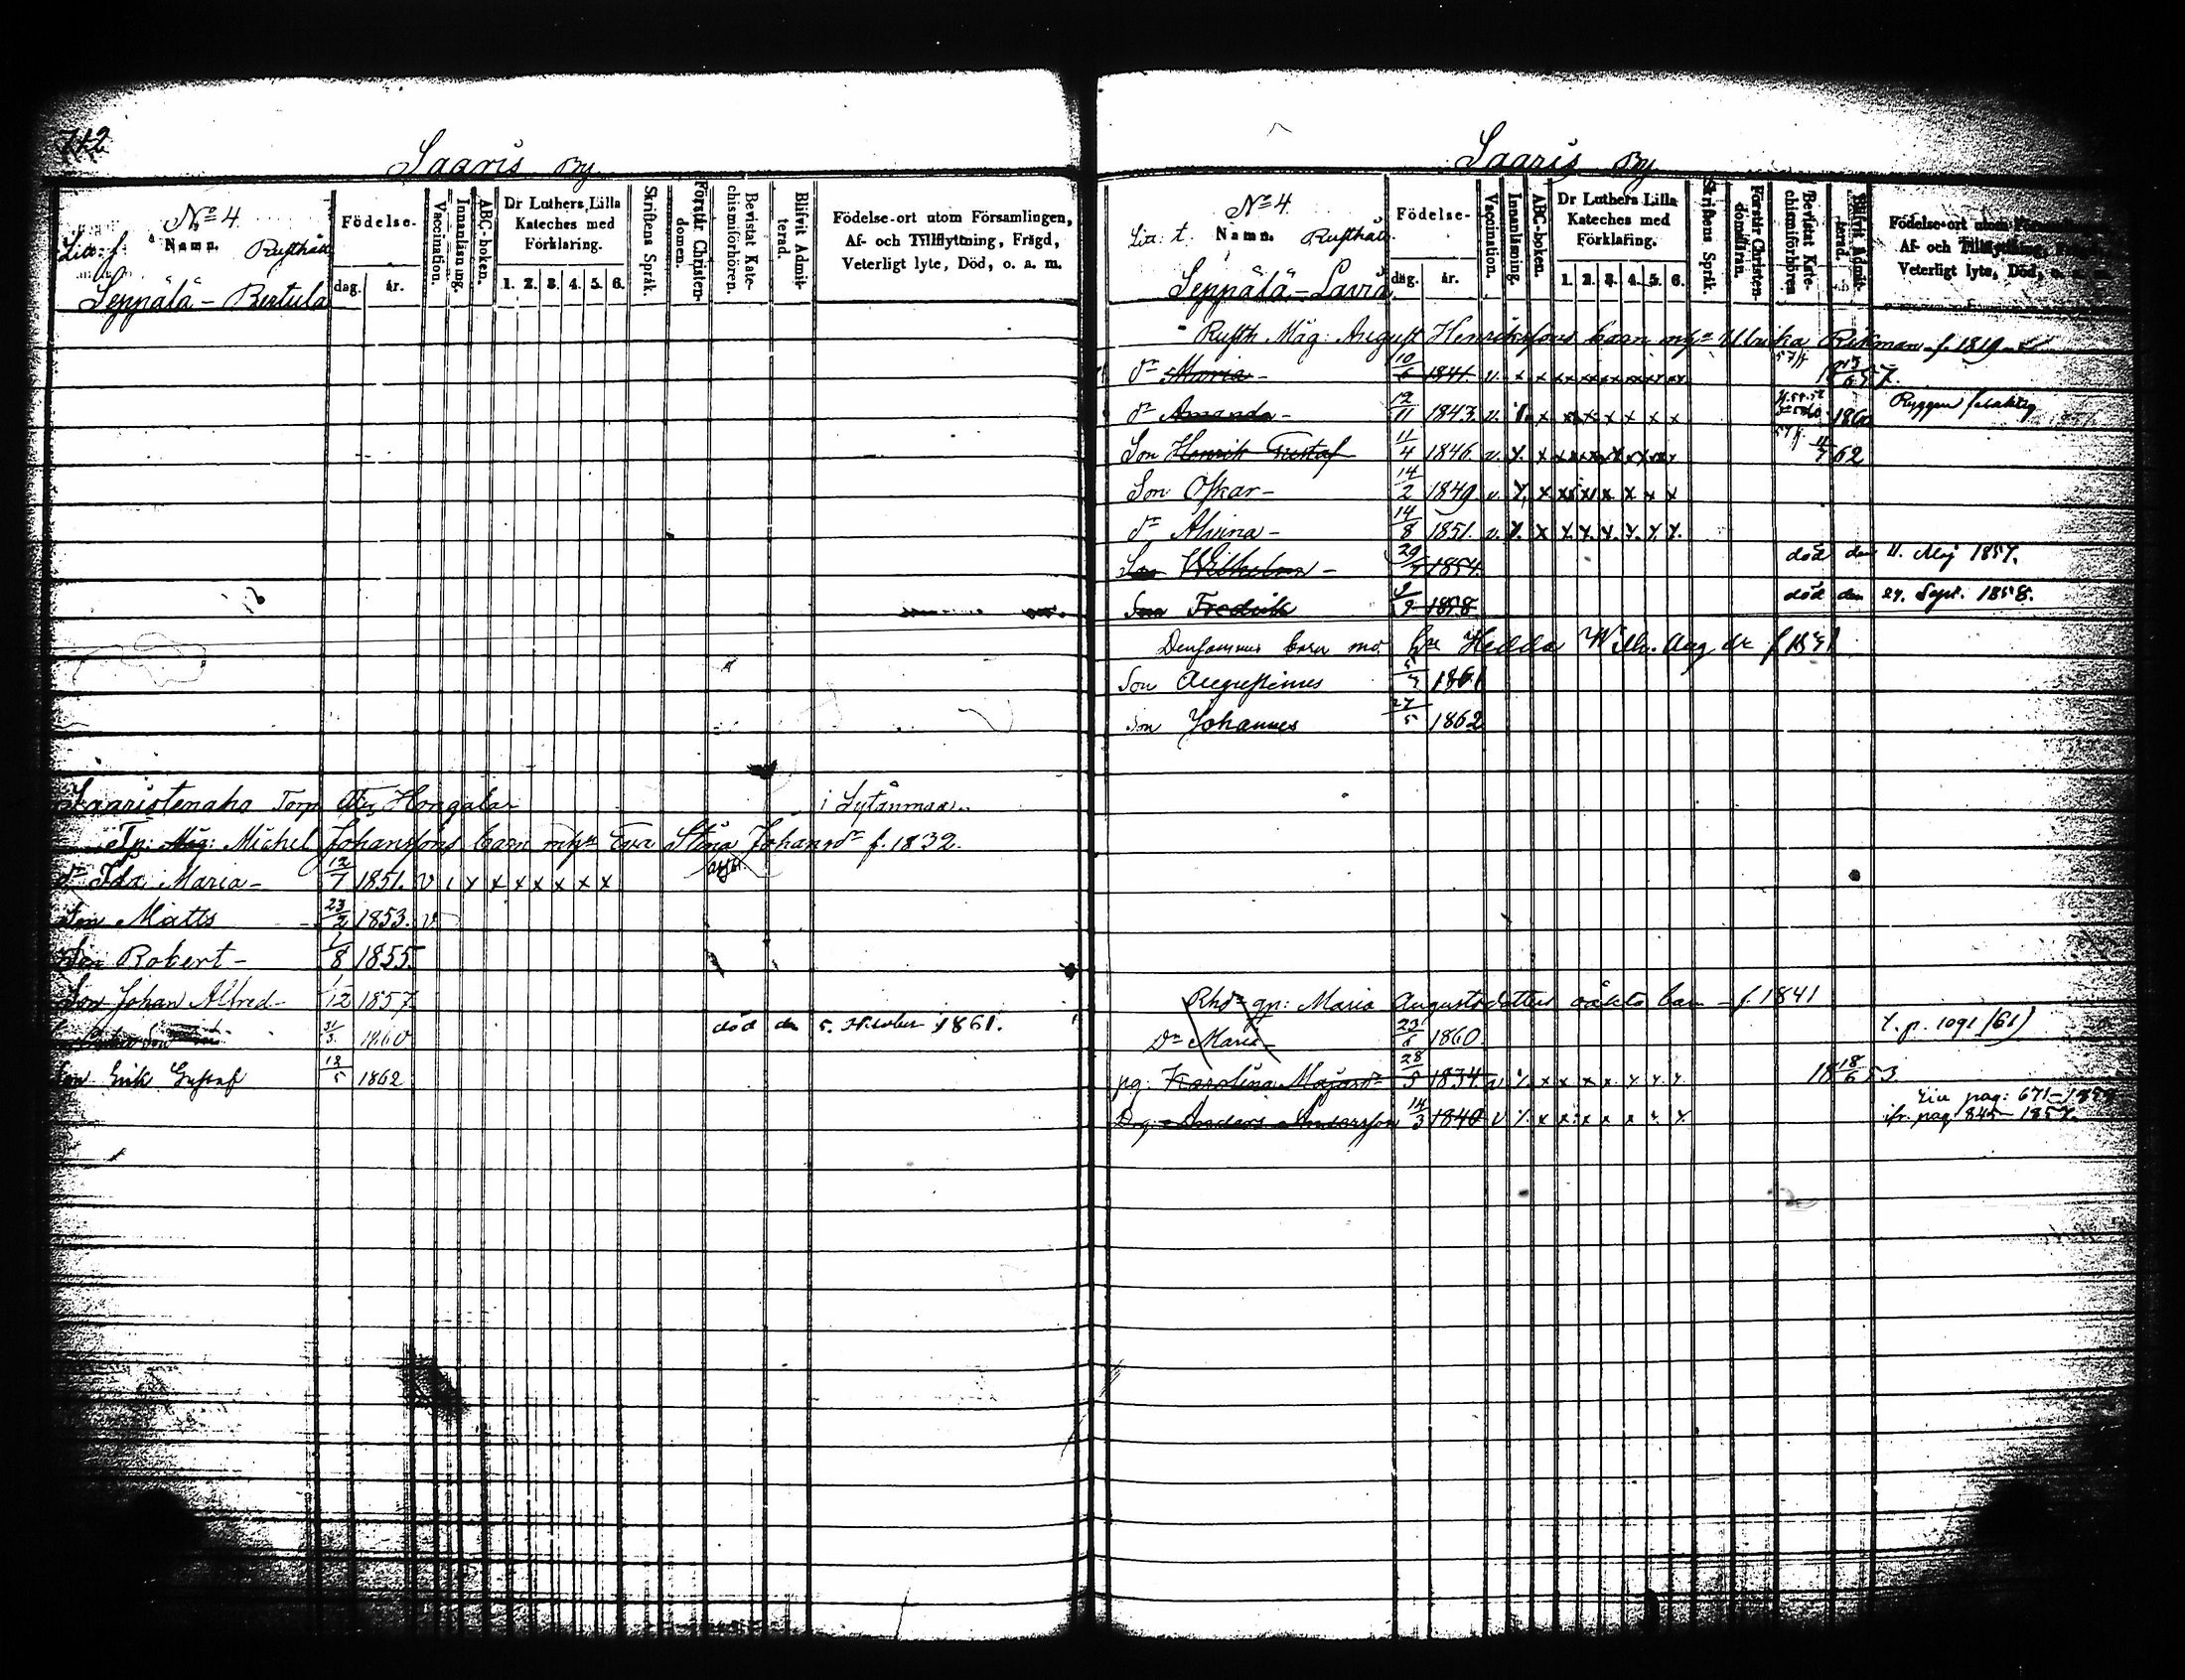 742
Saaris By
Nº 4
Litt: f. Namn. Rusthåll
Seppälä - Bertula
Födelse-
dag. år.
Vaccination.
Innanläsning.
ABC-boken.
Dr Luthers Lilla Kateches med Förklaring.
1. 2. 3. 4. 5. 6.
Skriftens Språk.
Förstår Christendomen.
Bevistat Katechismiförhören.
Blifvit Admitterad.
Födelse-ort utom Församlingen,
Af- och Tillflyttning, Frägd,
Veterligt lyte, Död, o. a. m.
Saaristenaho Torp Hongalar i Sytänmaa
Tp: Måg: Michel Johanssons barn m hu Eva Stina Johansdr f. 1832.
dr Ida Maria - 12/7 1851. v x x x x x x x
Son Matts 23/2 1853. v
Son Robert - 1/8 1855.
Son Johan Alfred - 1/12 1857
Son 31/3 1860 död den 5. October 1861.
Son Erik Gustaf 18/5 1862
Saaris By
Nº 4.
Litt: t. Namn. Rusthåll.
Seppälä - Lavia
Födelse-
dag. år.
Vaccination.
Innanläsning.
ABC-boken.
Dr Luthers Lilla Kateches med Förklaring.
1. 2. 3. 4. 5. 6.
Skriftens Språk.
Förstår Christendomsläran.
Bevistat Katechismiförhören
Blifvit Admitterad.
Födelse-ort utom
Af- och Tillflyttning,
Veterligt lyte, Död, o. a. m.
Rusth Måg: August Henrikssons barn m hu Ulrika Rikman f. 1819
dr Maria - 10/6 1841. v. x x x x x x x x 57
dr Amanda - 12/11 1843. v. x x x x x x x 1860 Ryggen felaktig
Son Henrik Gustaf 11/4 1846. v. x x x x x x x x 62
Son Oskar - 14/2 1849 v. x x x x x x x x
dr Alvina - 14/8 1851. v. x x x x x x x x
Son Wilhelm - 29/4 1854. död den 11. Maj 1857.
Son Fredrik 9/9 1858 död den 27. Sept. 1858.
Densammes barn m. hu Hedda Wilh. Aug dr f 1841
Son Augustinus 1861
Son Johannes 27/5 1862
Rhdr qp: Maria Augustsdotters oäkta barn - f. 1841
Dr Maria - 23/6 1860. t. p. 1091 (61)
pg: Karolina Majasdr 28/5 1834. v. x x x x x x x 18 18/6 53.
Live pag: 671-1858
Drg: Anders Andersson 14/3 1840 v x x x x x x x ifr. pag 845 1857.